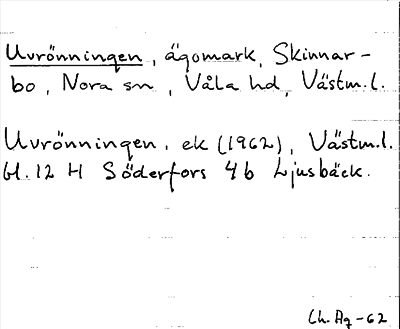 Uvrönningen, ägomark, Skinnar-
bo, Nora sn, Våla hd, Västm.l.
Uvrönningen, ek (1962), Västm.l.
bl. 12 H Söderfors 4b Ljusbäck.
Ch. Ag -62